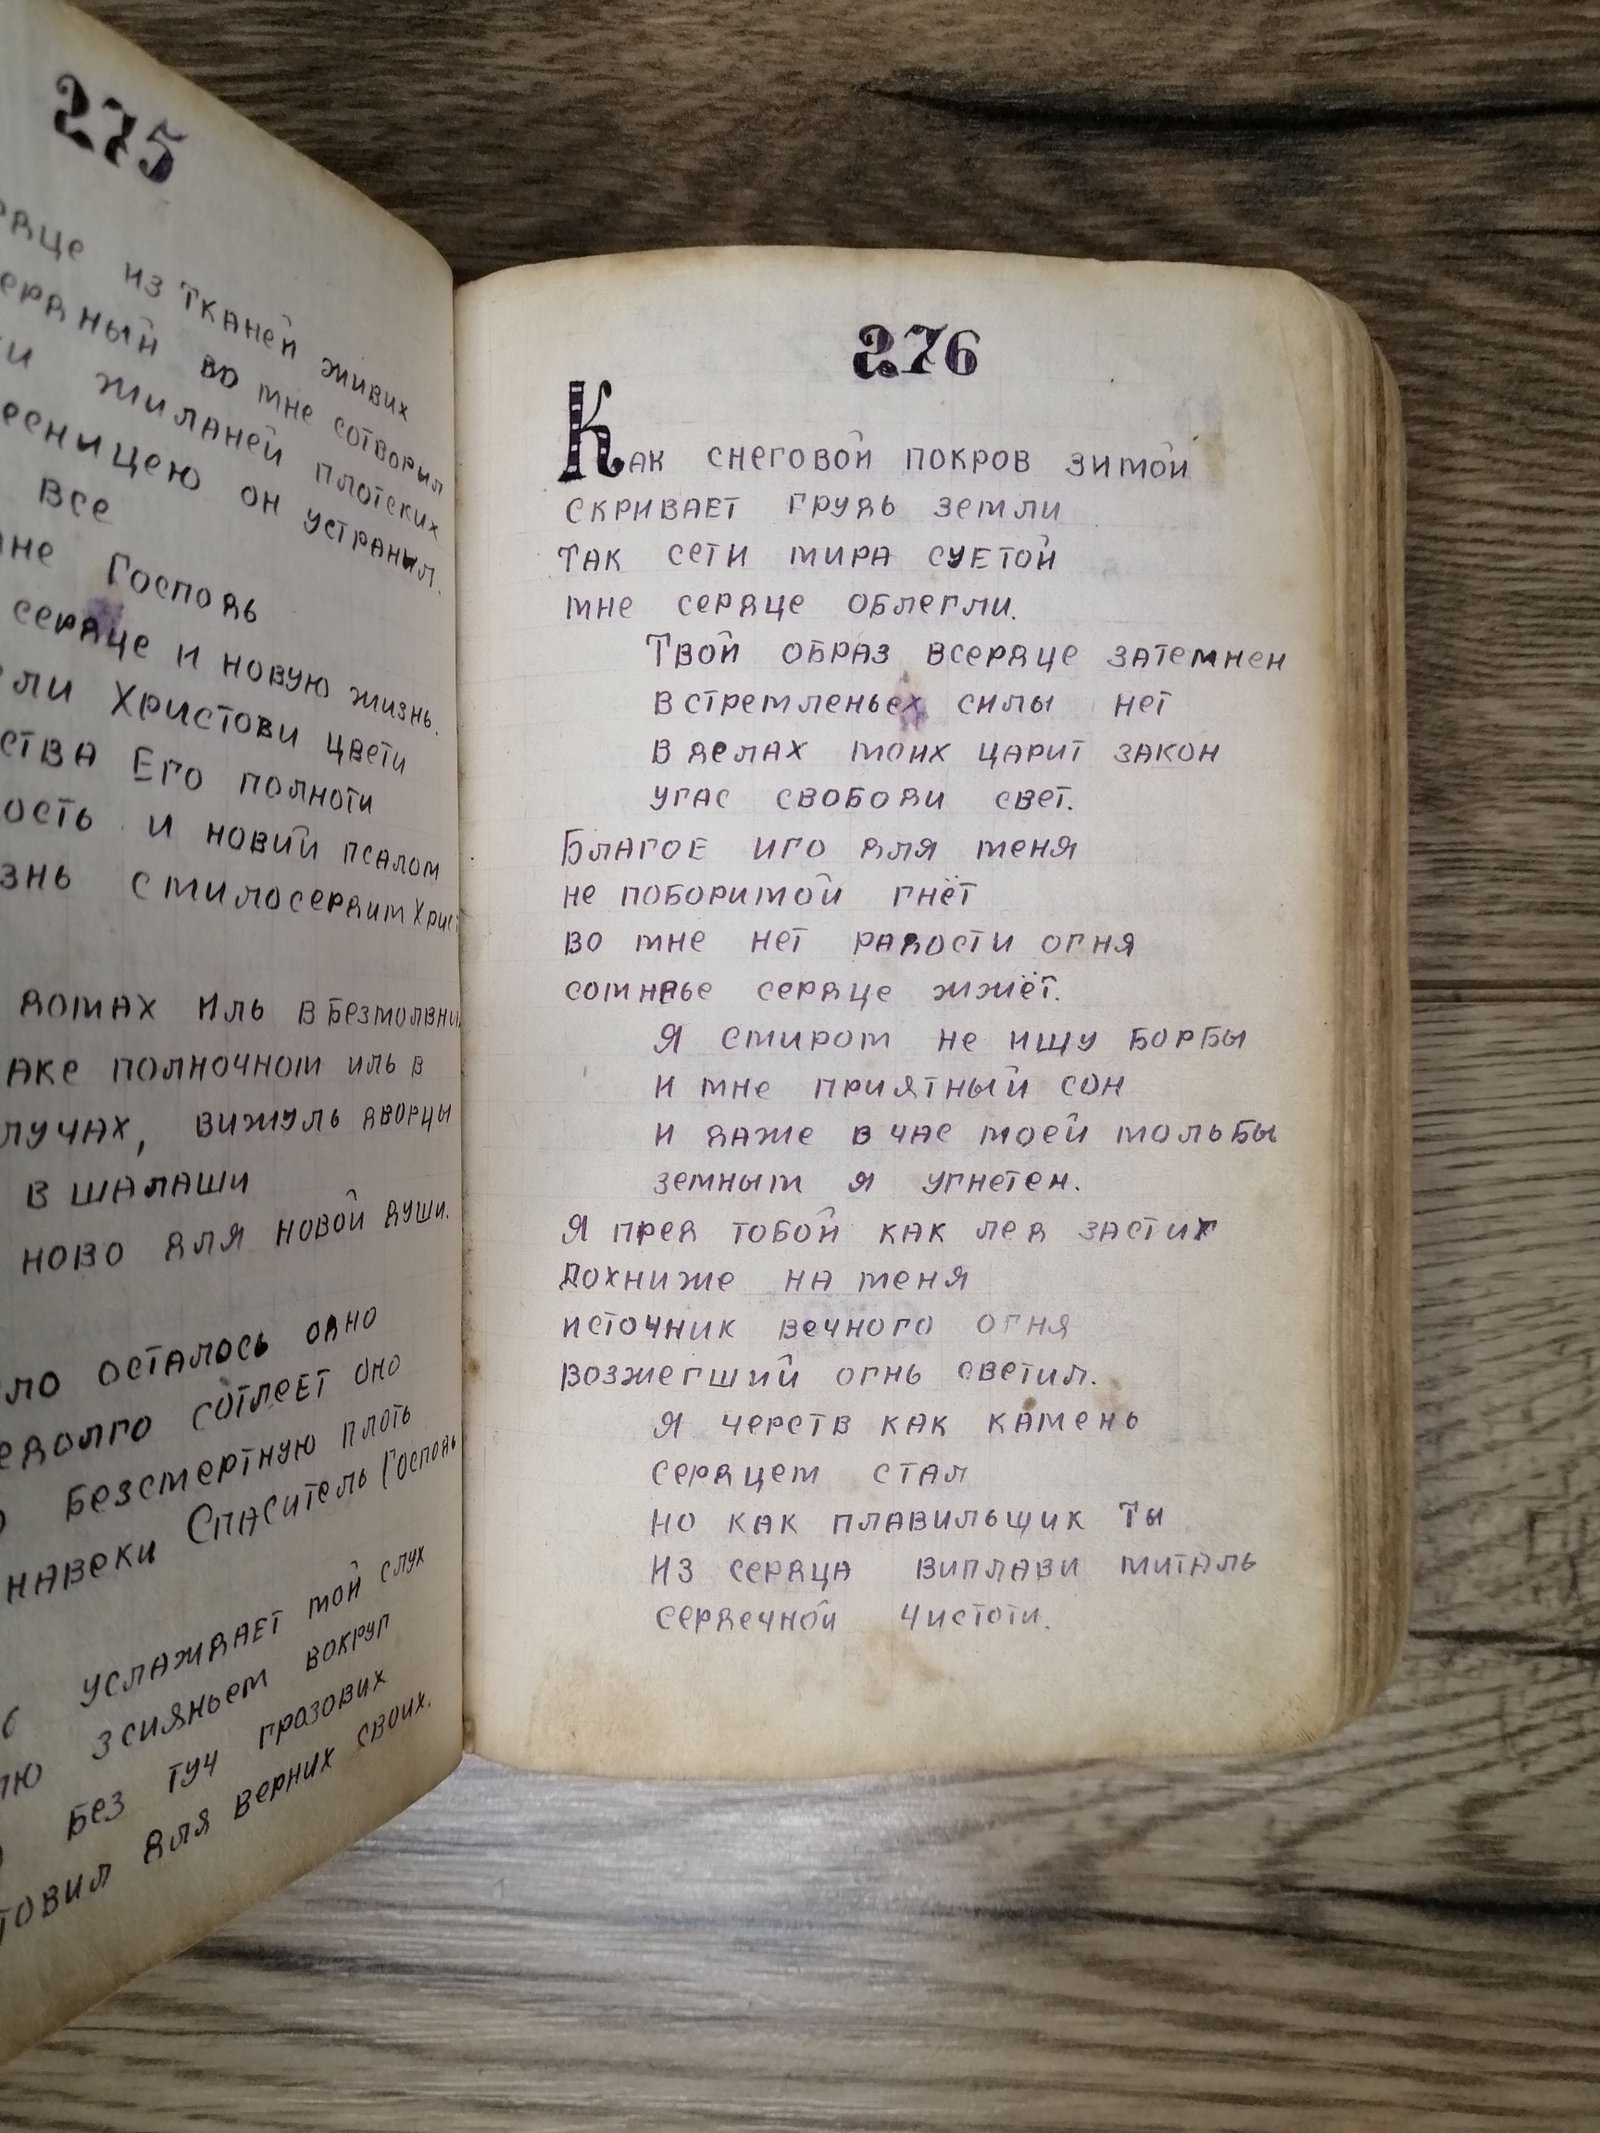 275
из тканей живих
во мне сотворил
жиланей плотских
он устранил.
все
Господь
сердце и новую жизнь.
Христови цвети
Его полноти
и новий псалом
смилосердим
домах иль в безмолвии
полночном иль в
лучах, вижуль дворцы
в шалаши
ново для новой души.
осталось одно
сотлеет оно
безсмертную плоть
навеки Спаситель Господь
услаждает мой слух
зсияньем вокруг
без туч грозових
для верних своих.
276
Как снеговой покров зимой
скривает грудь земли
так сети мира суетой
мне сердце облегли.
Твой образ всердце затемнен
встремленьех силы нет
в делах моих царит закон
угас свободи свет.
Благое иго для меня
не поборимой гнёт
во мне нет радости огня
сомнье сердце жжёт.
Я смиром не ищу борбы
и мне приятный сон
и даже в час моей мольбы
земным я угнетен.
Я пред тобой как лед застиг
Дохниже на меня
источник вечного огня
возжегший огнь светил.
Я черств как камень
сердцем стал
но как плавильщик ты
из сердца виплави миталь
сердечной чистоти.